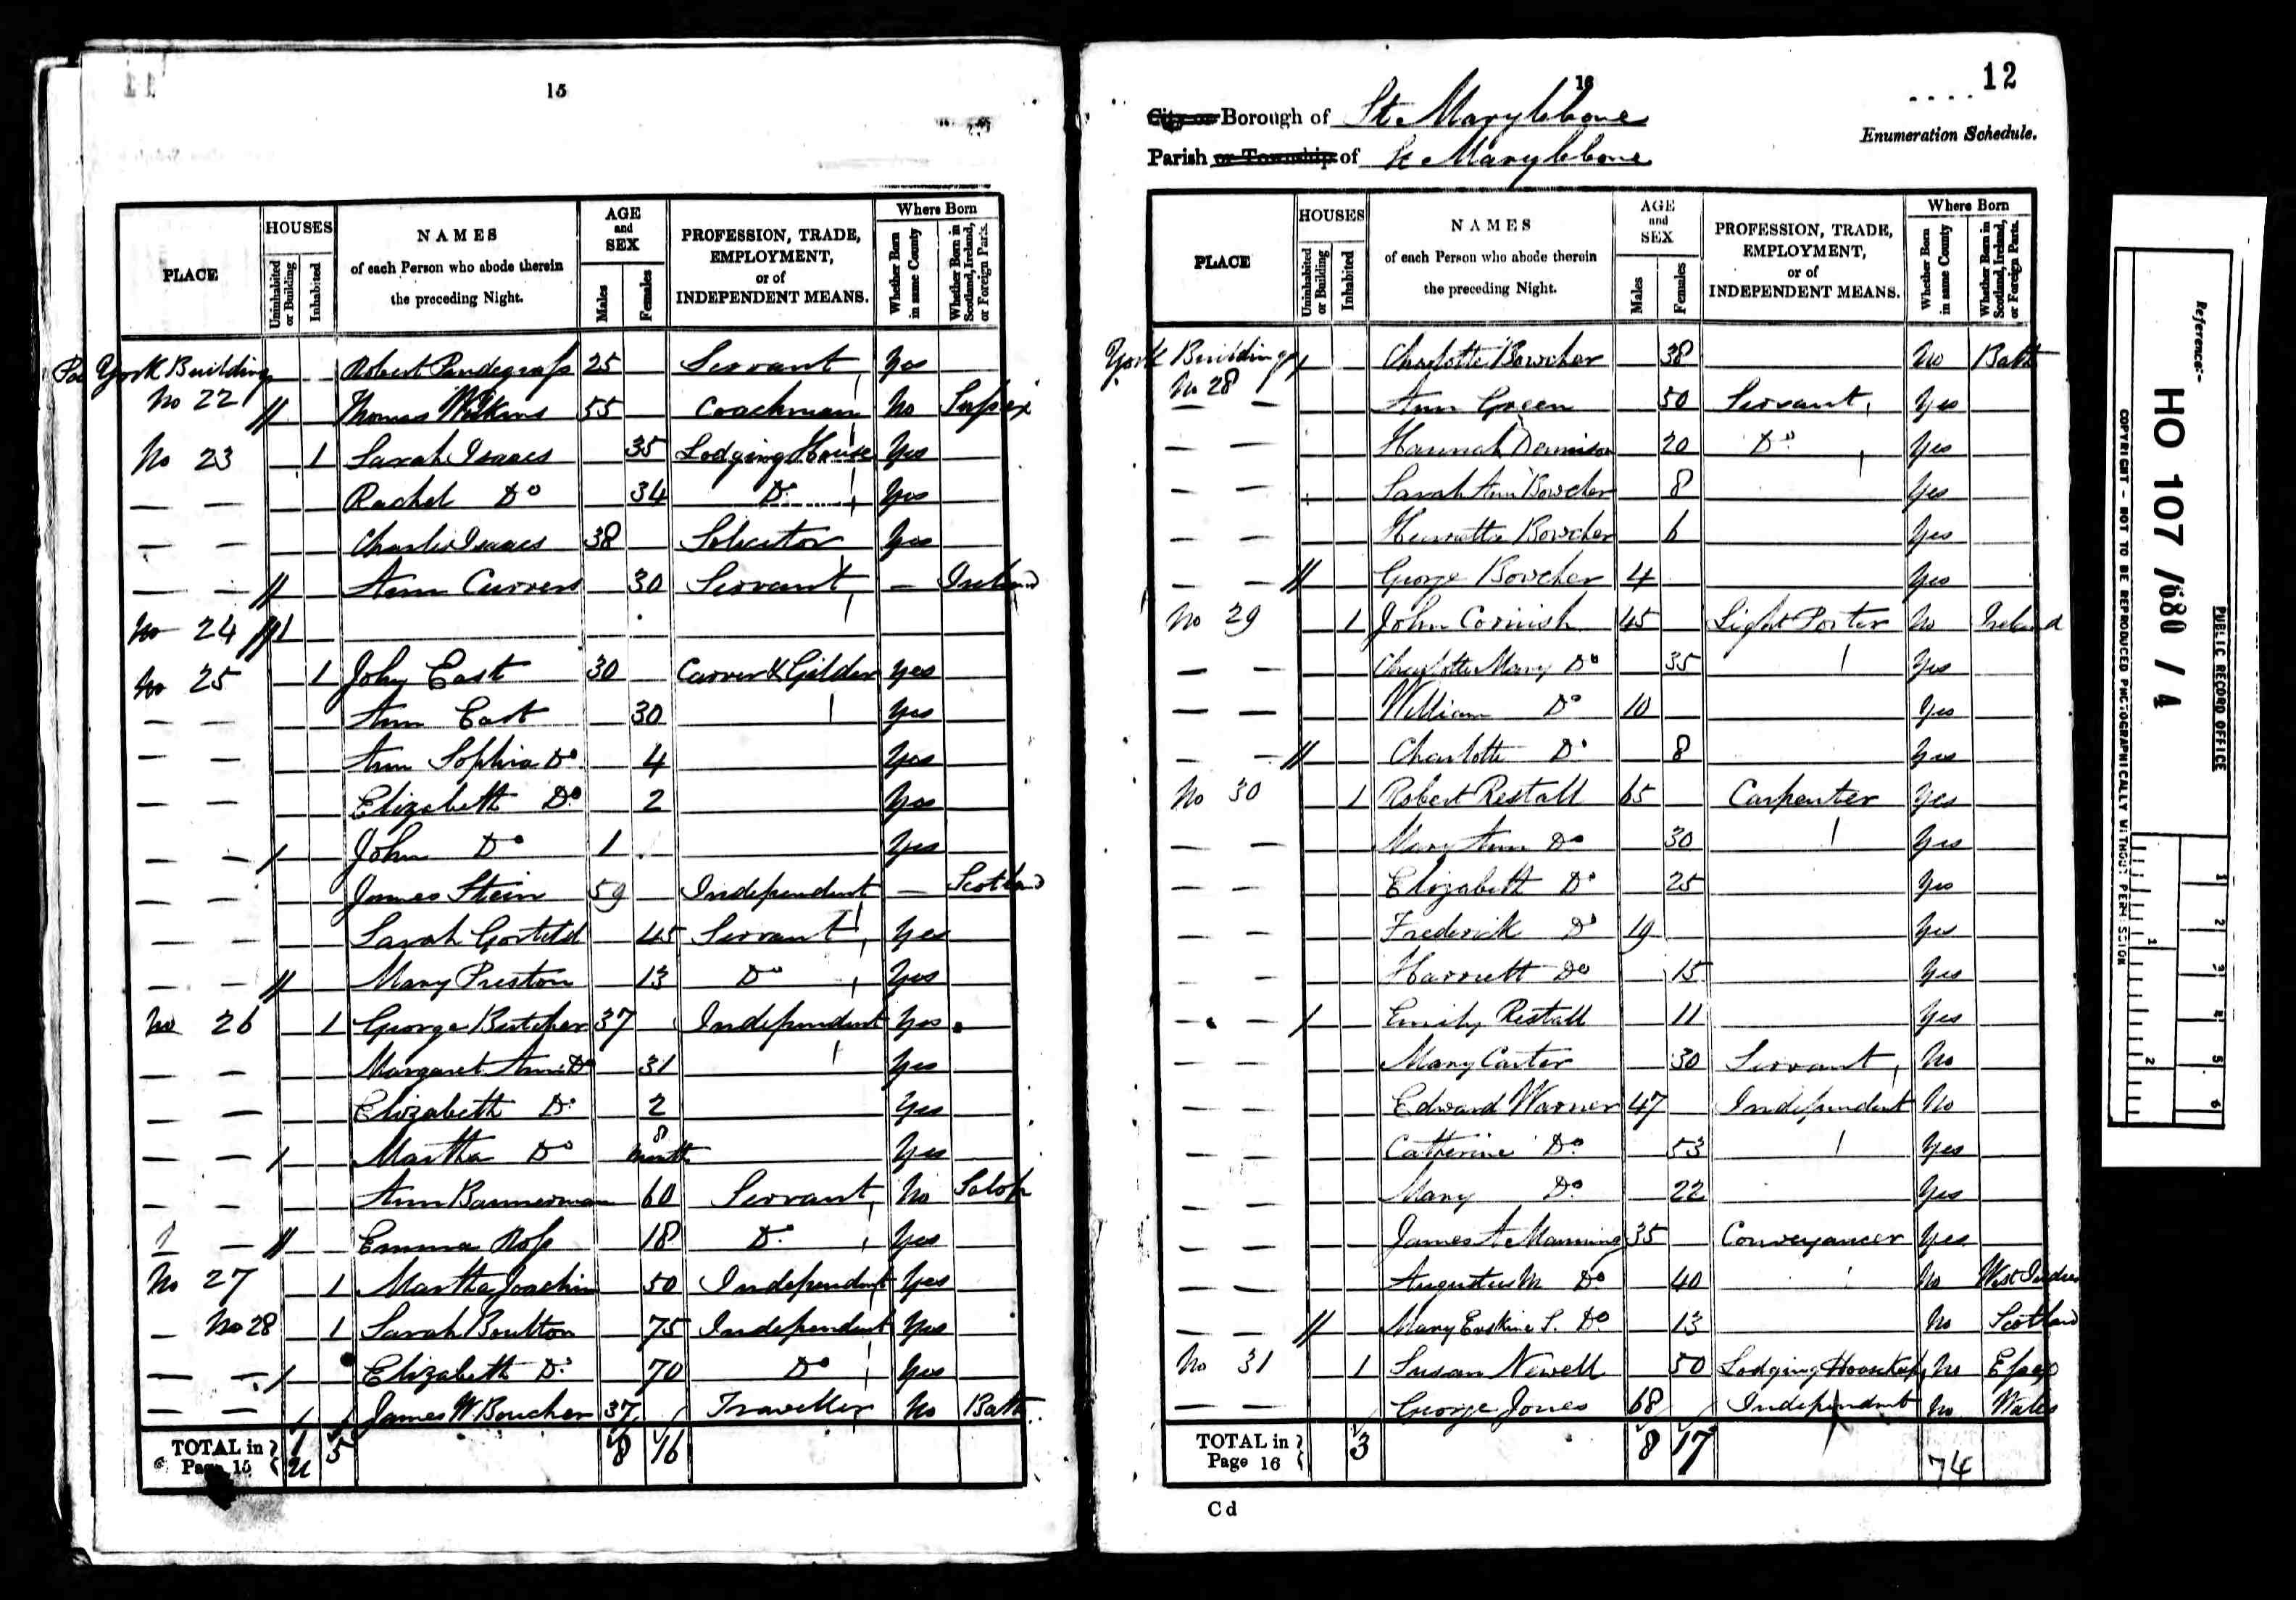 15
PLACE
HOUSES
Uninhabited or Building
Inhabited
NAMES
of each Person who abode therein
the preceding Night.
AGE
and
SEX
Males
Females
PROFESSION, TRADE,
EMPLOYMENT,
or of
INDEPENDENT MEANS.
Where Born
Whether Born in same County
Whether Born in Scotland, Ireland, or Foreign Parts.
York Buildings Robert 25 Servant Yes
No 22 Thomas 55 Coachman No Sussex
No 23 1 Sarah Isaacs 35 Lodging House Yes
— — Rachel Do 34 Do Yes
— — Charles Isaacs 38 Solicitor Yes
— — Ann 30 Servant — Ireland
No 24 1
No 25 1 John East 30 Carver & Gilder Yes
— — Ann East 30 Yes
— — Ann Sophia Do 4 Yes
— — Elizabeth Do 2 Yes
— — John Do 1 Yes
— — James Stein 59 Independent — Scotland
— — Sarah 45 Servant Yes
— — Mary Preston 13 Do Yes
No 26 1 George Butcher 37 Independent Yes
— — Margaret Ann Do 31 Yes
— — Elizabeth Do 2 Yes
— — Martha Do 8 Month Yes
— — Ann Bannerman 60 Servant No Salop
— Emma Ross 18 Do Yes
No 27 1 Martha Joachim 50 Independent Yes
— No 28 1 Sarah Boulton 75 Independent Yes
— — Elizabeth Do 70 Do Yes
— — James W. Boucher 37 Traveller No Bath
TOTAL in
Page 15 5 8 16
16
12
City or Borough of St. Marylebone
Enumeration Schedule.
Parish or Township of St Marylebone
PLACE
HOUSES
Uninhabited or Building
Inhabited
NAMES
of each Person who abode therein
the preceding Night.
AGE
and
SEX
Males
Females
PROFESSION, TRADE,
EMPLOYMENT,
or of
INDEPENDENT MEANS.
Where Born
Whether Born in same County
Whether Born in Scotland, Ireland, or Foreign Parts.
York Buildings Charlotte Bowcher 38 No Bath
No 28
— — Ann Green 50 Servant Yes
— — Hannah Dennison 20 Do Yes
— — Sarah Ann Bowcher 8 Yes
— — Henrietta Bowcher 6 Yes
— — George Bowcher 4 Yes
No 29 1 John Cornish 45 Light Porter No Ireland
— — Charlotte Mary Do 35 Yes
— — William Do 10 Yes
— — Charlotte Do 8 Yes
No 30 1 Robert Restall 65 Carpenter Yes
— — Mary Ann Do 30 Yes
— — Elizabeth Do 25 Yes
— — Frederick Do 19 Yes
— Harriett Do 15 Yes
— — Emily Restall 11 Yes
— — Mary Carter 30 Servant No
— — Edward Warner 47 Independent No
— — Catherine Do 53 Yes
— — Mary Do 22 Yes
— — James A Manning 35 Conveyancer Yes
— — Augustus M Do 40 No West Indies
— — Mary Erskine S. Do 13 No Scotland
No 31 1 Susan Newell 50 No Essex
— — George Jones 68 Independent No Wales
TOTAL in
Page 16 3 8 17 74
Cd
Reference:-
HO 107 / 680 / 4
PUBLIC RECORD OFFICE
COPYRIGHT - NOT TO BE REPRODUCED PHOTOGRAPHICALLY WITHOUT PERMISSION
1
2
3
4
5
6
1
2